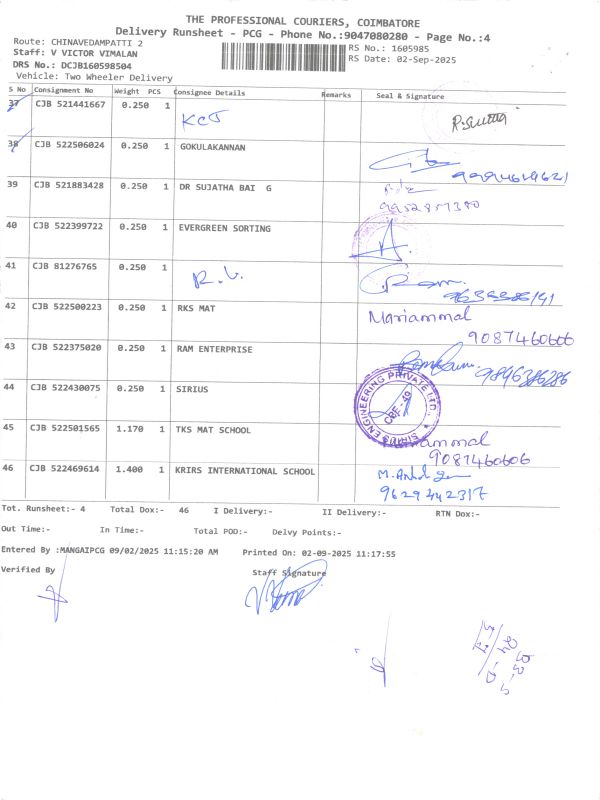 THE PROFESSIONAL COURIERS, COIMBATORE
Delivery Runsheet - PCG - Phone No.:9047080280 - Page No.:4
Route: CHINAVEDAMPATTI 2
RS No.: 1605985
Staff: V VICTOR VIMALAN
RS Date: 02-Sep-2025
DRS No.: DCJB160598504
Vehicle: Two Wheeler Delivery
S No Consignment No Weight PCS Consignee Details Remarks Seal & Signature
37 CJB 521441667 0.250 1 KCT R.Sujatha
38 CJB 522506024 0.250 1 GOKULAKANNAN
39 CJB 521883428 0.250 1 DR SUJATHA BAI G
9952857380
40 CJB 522399722 0.250 1 EVERGREEN SORTING
41 CJB 81276765 0.250 1 R.V.
42 CJB 522500223 0.250 1 RKS MAT Mariammal
9087460606
43 CJB 522375020 0.250 1 RAM ENTERPRISE
9896386286
44 CJB 522430075 0.250 1 SIRIUS
SIRIUS ENGINEERING PRIVATE LTD.
CBE - 49
45 CJB 522501565 1.170 1 TKS MAT SCHOOL
9087460606
46 CJB 522469614 1.400 1 KRIRS INTERNATIONAL SCHOOL
9629442317
Tot. Runsheet:- 4 Total Dox:- 46 I Delivery:- II Delivery:- RTN Dox:-
Out Time:- In Time:- Total POD:- Delvy Points:-
Entered By :MANGAIPCG 09/02/2025 11:15:20 AM Printed On: 02-09-2025 11:17:55
Verified By Staff Signature